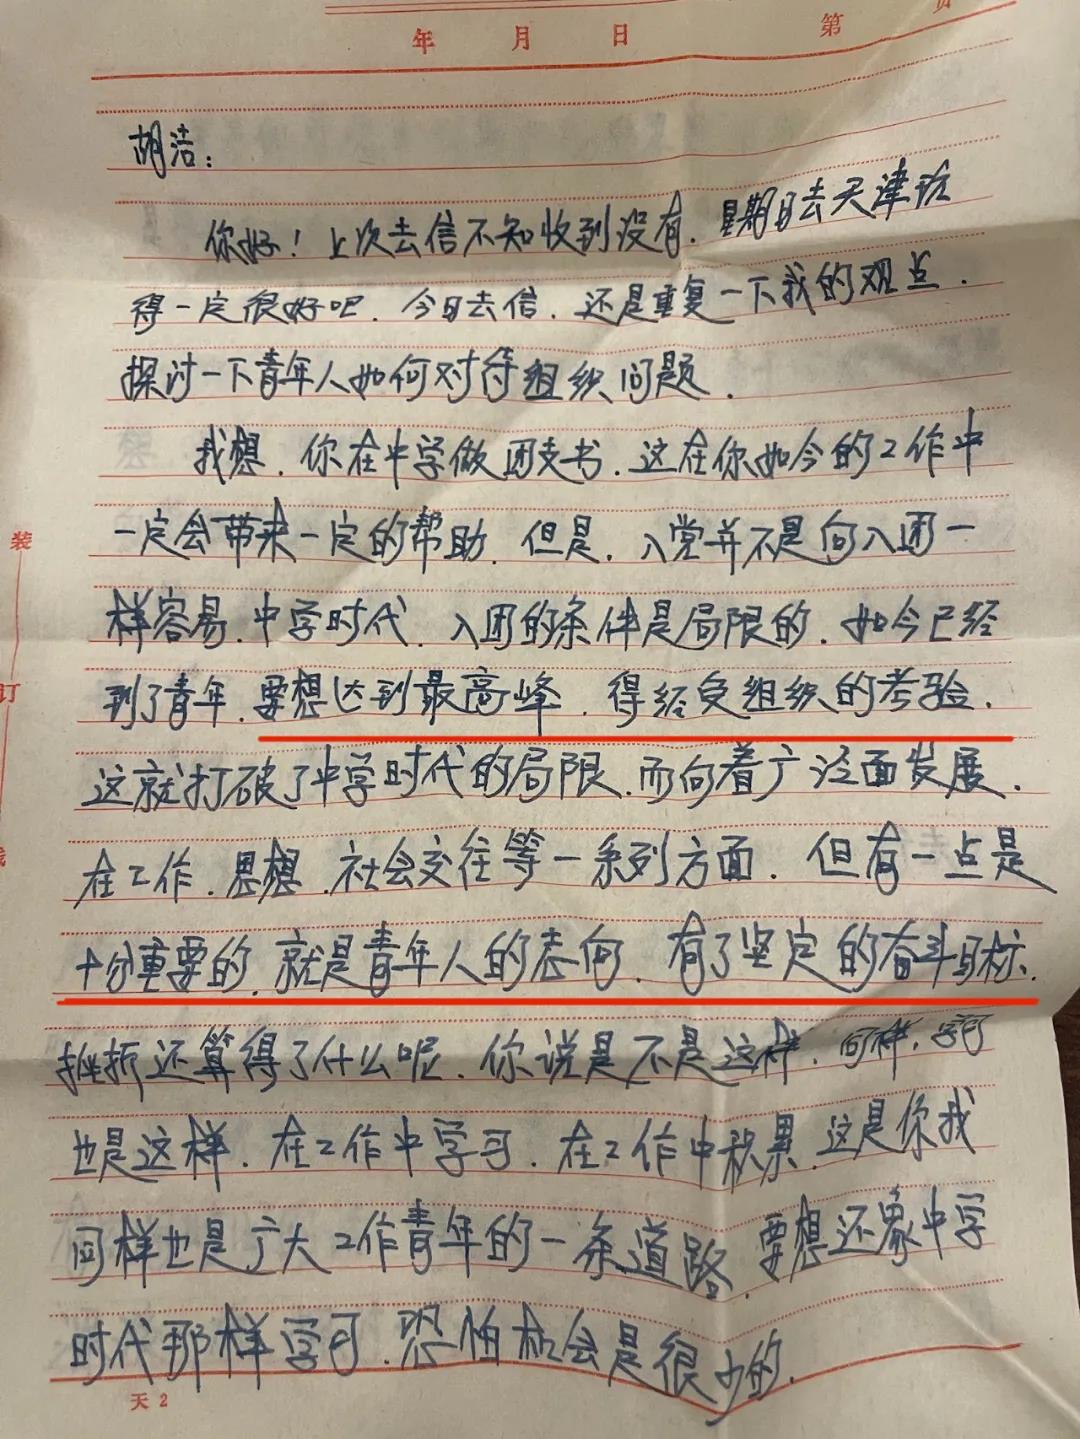 年 月 日 第 页
胡洁：
你好！上次去信不知收到没有．星期日去天津玩
得一定很好吧．今日去信．还是重复一下我的观点．
探讨一下青年人如何对待组织问题．
我想．你在中学做团支书．这在你如今的工作中
一定会带来一定的帮助．但是．入党并不是向入团一
样容易．中学时代．入团的条件是局限的．如今已经
到了青年．要想达到最高峰．得经受组织的考验．
这就打破了中学时代的局限．而向着广泛面发展．
在工作．思想．社会交往等一系列方面．但有一点是
十分重要的．就是青年人的志向．有了坚定的奋斗目标．
挫折还算得了什么呢．你说是不是这样．同样．学习
也是这样．在工作中学习．在工作中积累．这是你我
同样也是广大工作青年的一条道路．要想还象中学
时代那样学习．恐怕机会是很少的．
天2
装
订
线